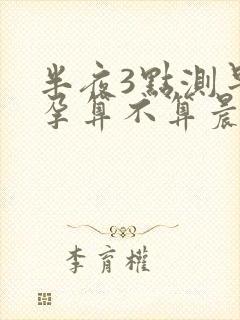 半夜3點測
孕算不算晨
李育權